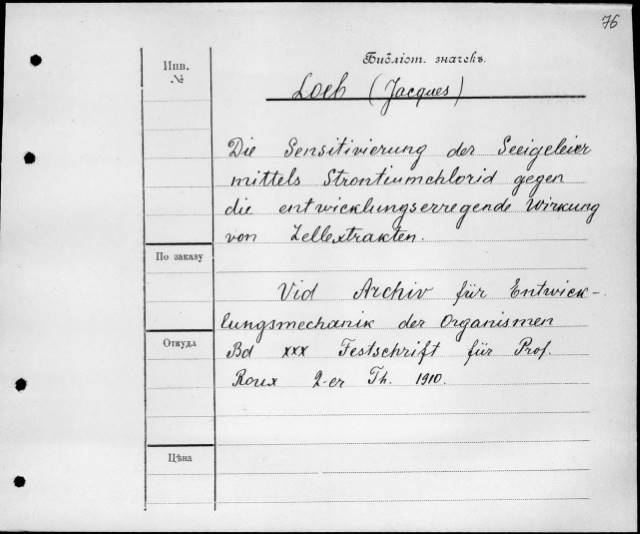 76
Библіот. значекъ.
Инв.
№
Loeb (Jacques)
Die Sensitivierung der Seeigeleier
mittels Strontiumchlorid gegen
die entwicklungserregende Wirkung
von Zellextrakten.
По заказу
Vid Archiv für Entwick-
lungsmechanik der Organismen
Откуда
Bd XXX Festschrift für Prof.
Roux 2-er Th. 1910.
Цѣна